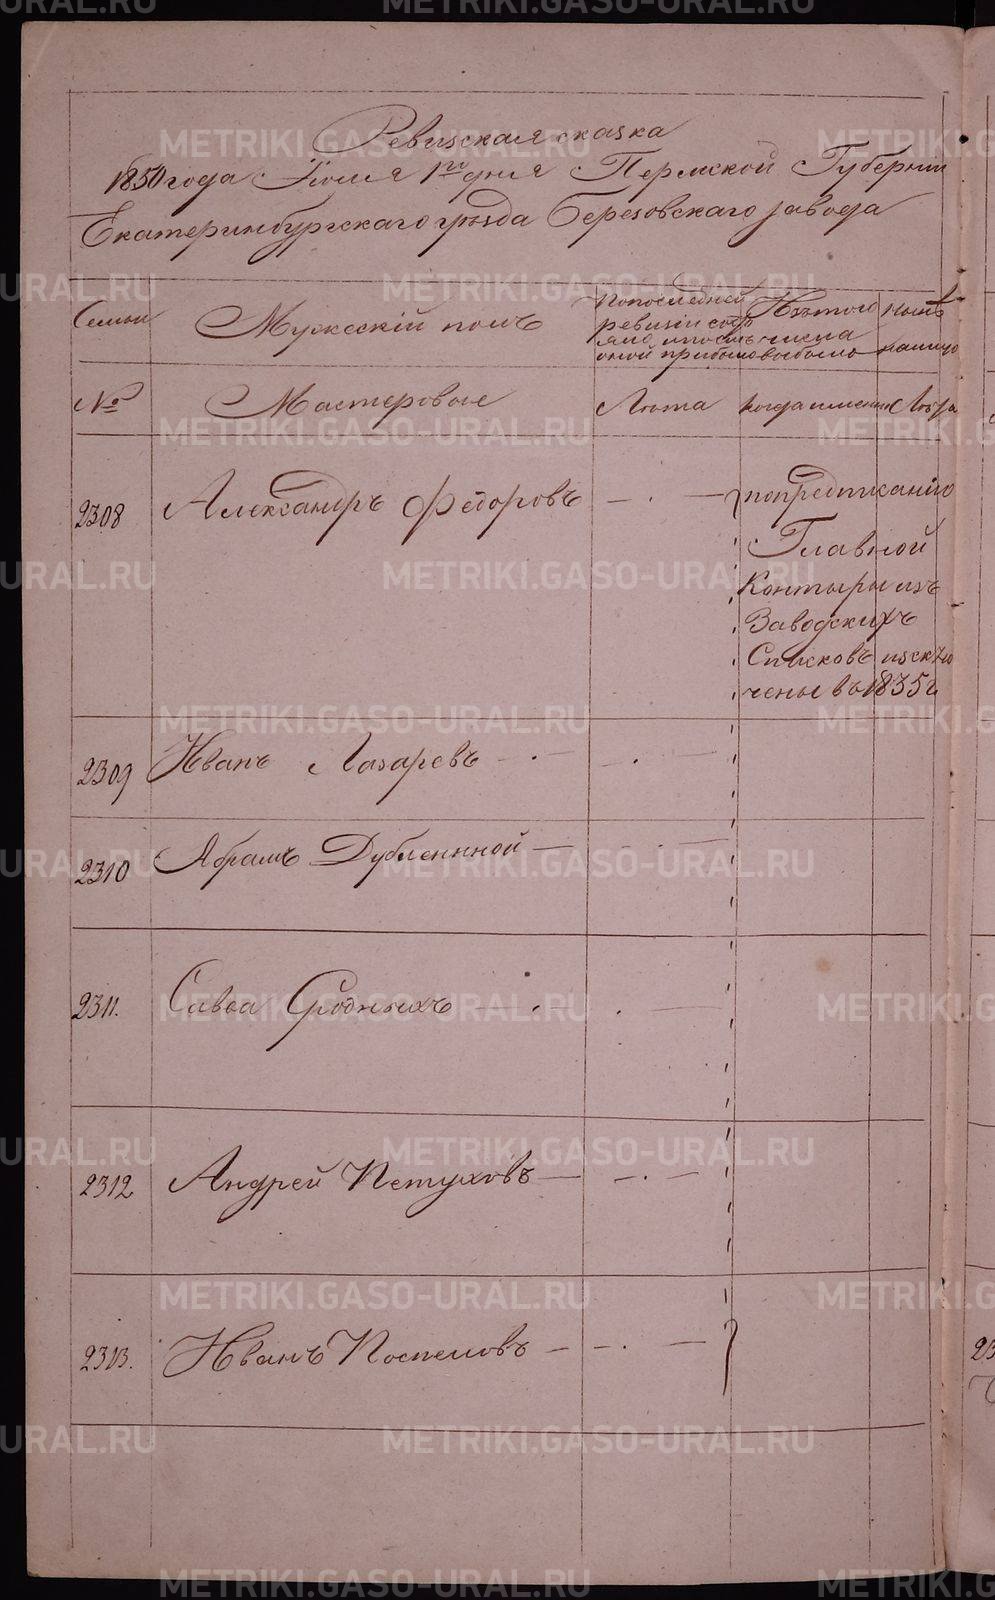 Ревизская сказка
1850 года Июля 1го дня Пермской Губернии
Екатеринбургскаго уѣзда Березовскаго завода
Семьи
Мужескій полъ
По последней
ревизіи сост
ояло и после
оной прибыло
Изъ того
числа
выбыло
Нынѣ
налицо
№
Мастеровые
Лѣта
когда именно
Лѣта
2308
Александръ Ѳедоровъ
по предписанію
Главной
Конторы изъ
Заводскихъ
Списковъ исклю
чены въ 1835 г
2309
Иванъ Лазаревъ
2310
Абрамъ Дубленной
2311.
Савва Сродныхъ
2312
Андрей Петуховъ
2313.
Иванъ Поспеловъ
METRIKI.GASO-URAL.RU